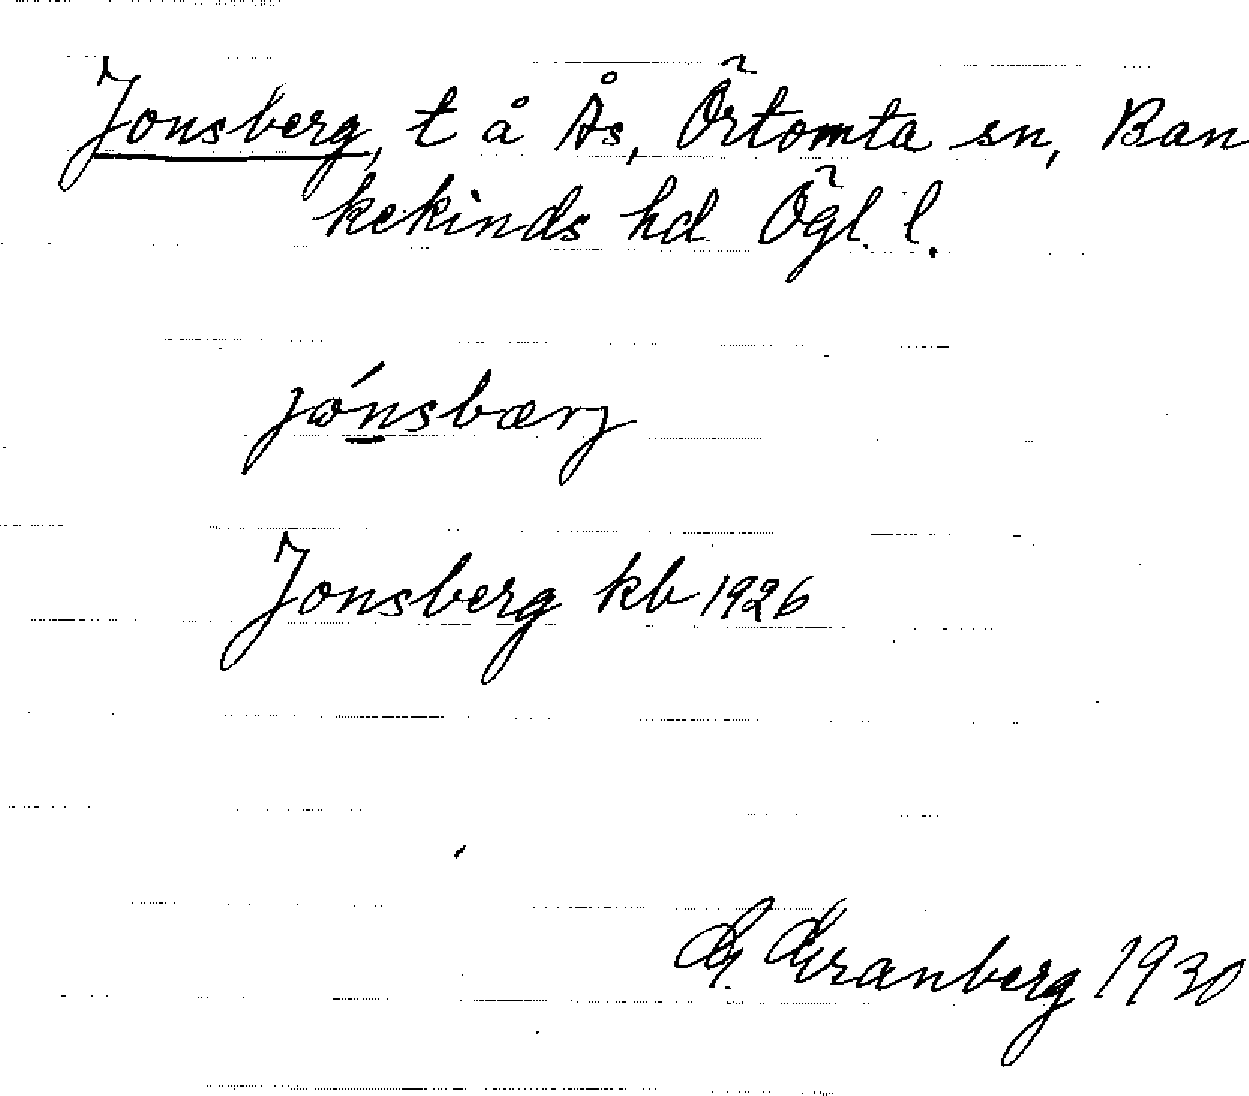 Jonsberg, t å Ås, Örtomta sn, Ban
kekinds hd Ögl. l.
jónsbærj
Jonsberg kb 1926
G. Granberg 1930